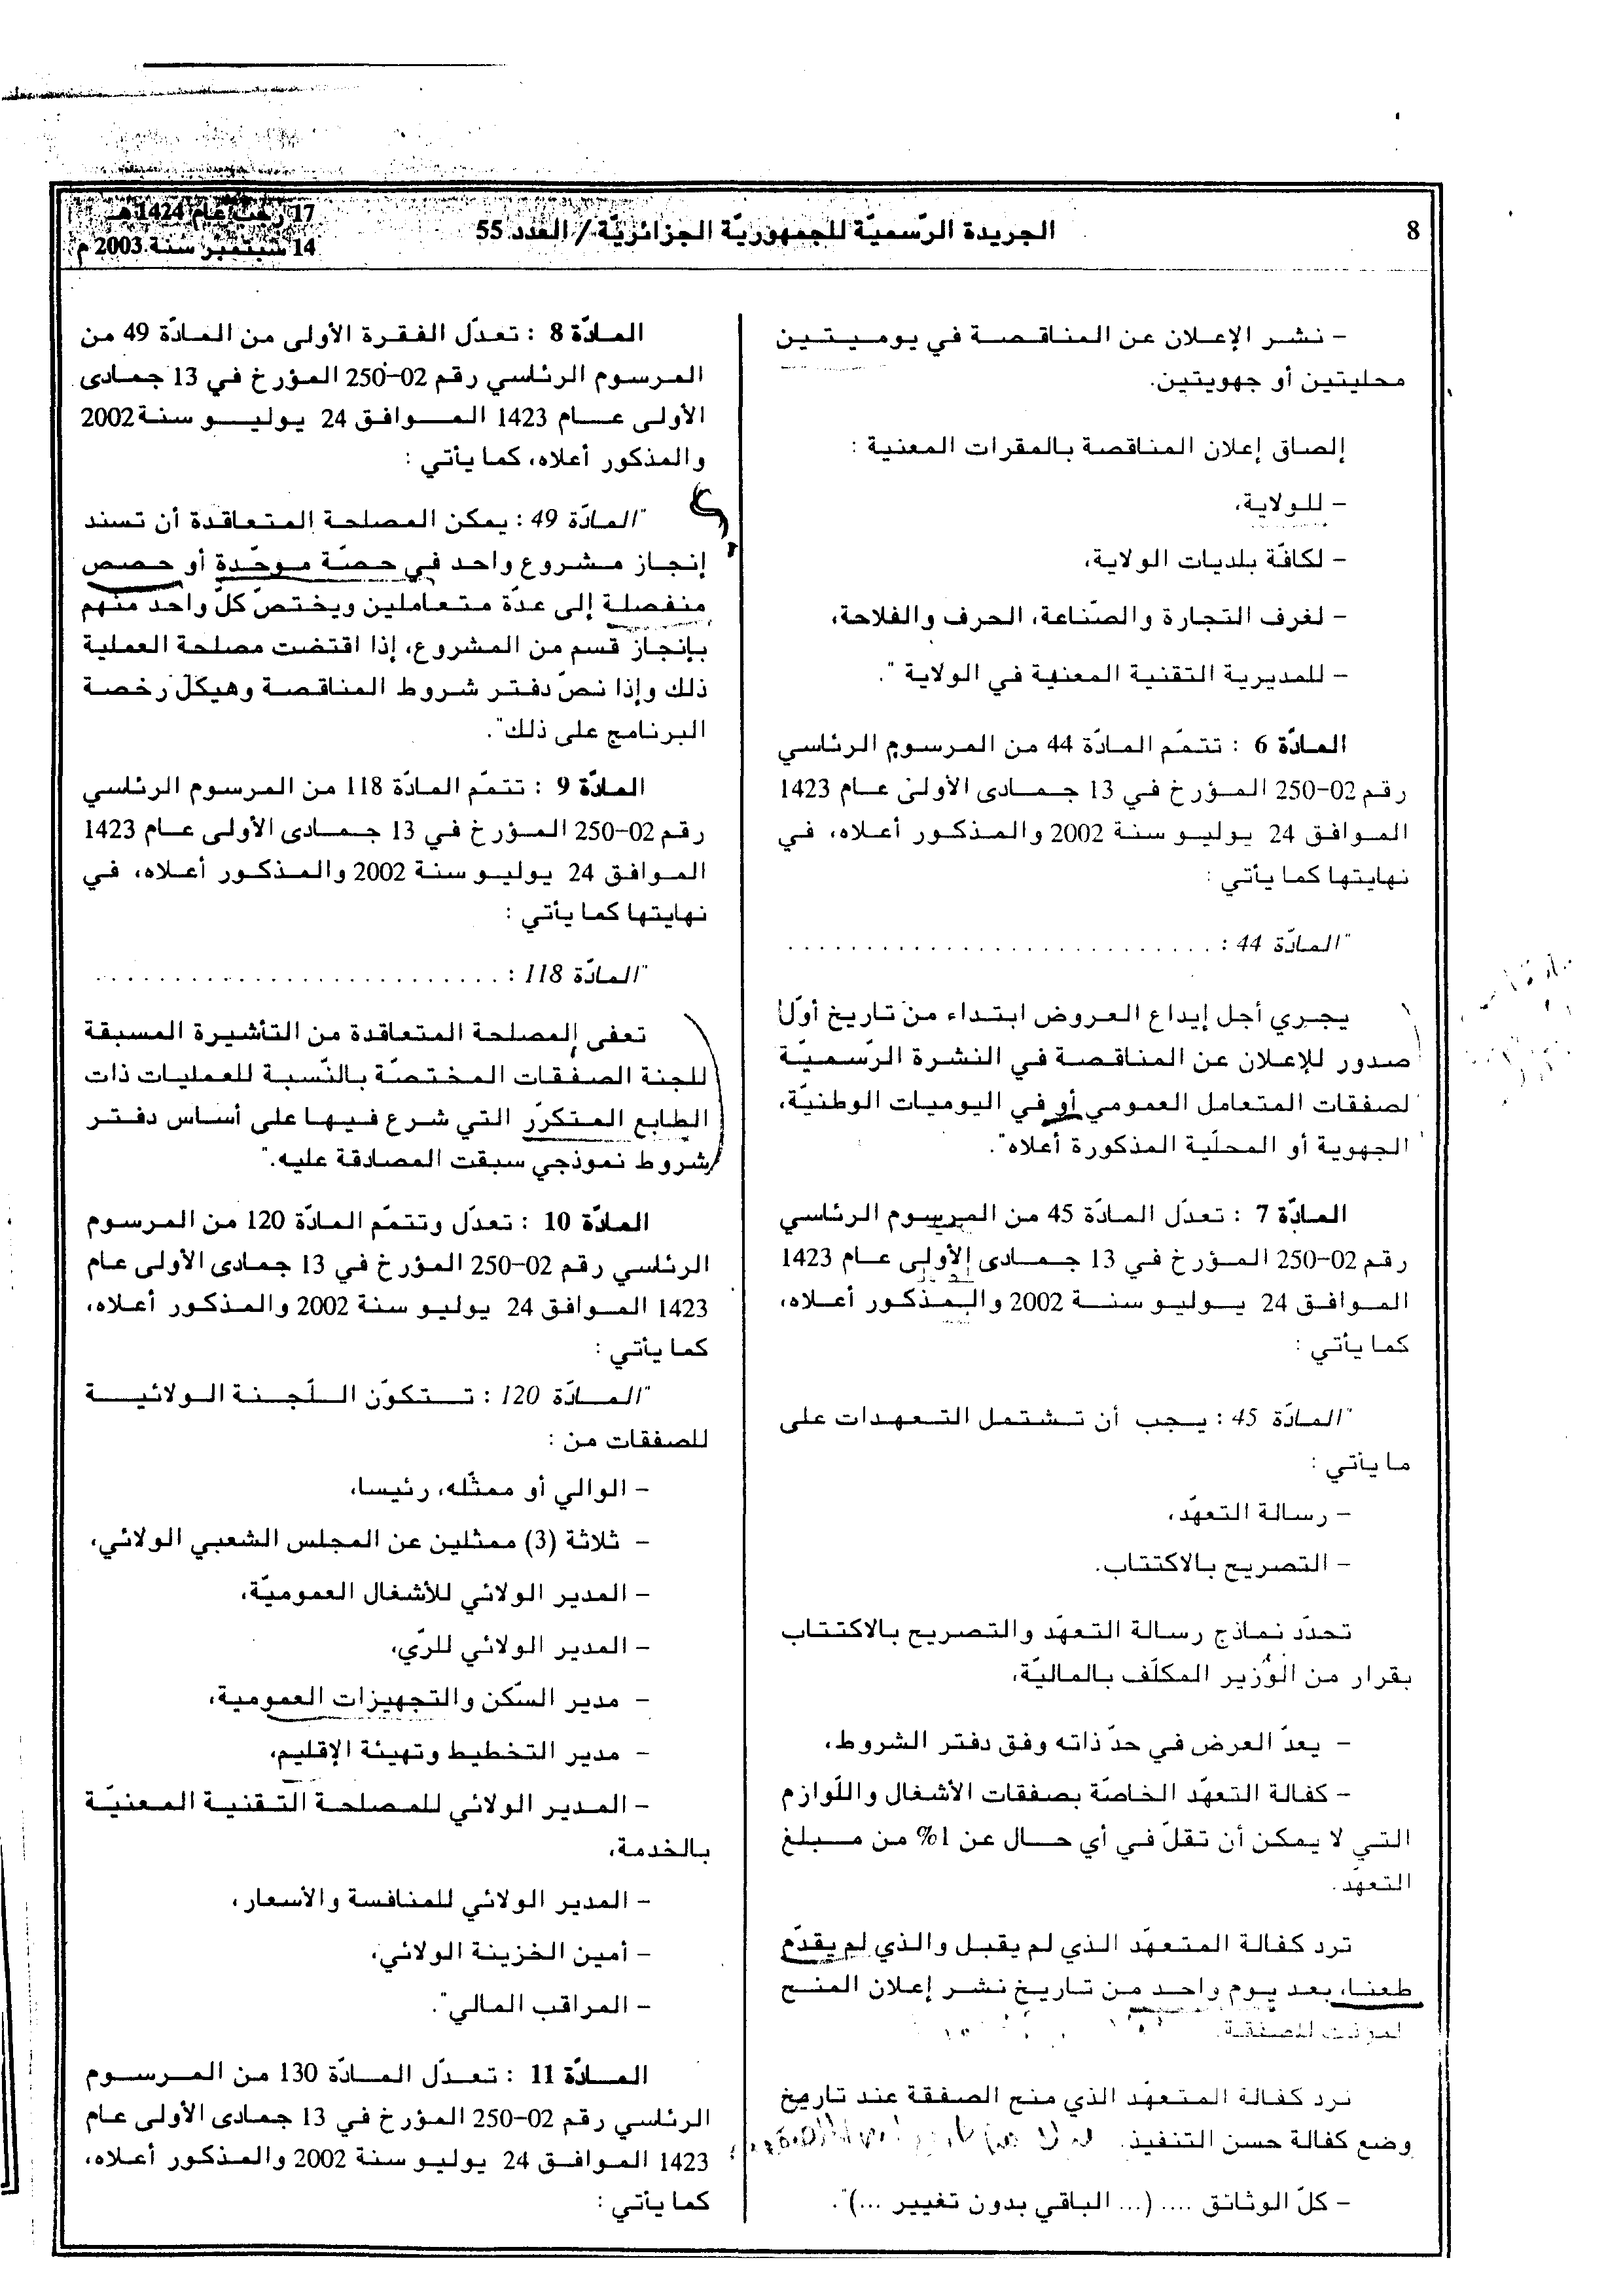 8
الجريدة الرّسميّة للجمهوريّة الجزائريّة / العدد 55
17 رجب عام 1424 هـ
14 سبتمبر سنة 2003 م
– نشر الإعلان عن المناقصة في يوميتين
محليتين أو جهويتين.
إلصاق إعلان المناقصة بالمقرات المعنية :
– للولاية،
– لكافّة بلديات الولاية،
– لغرف التجارة والصّناعة، الحرف والفلاحة،
– للمديرية التقنية المعنية في الولاية ".
المادّة 6 : تتمّم المادّة 44 من المرسوم الرئاسي
رقم 02–250 المؤرخ في 13 جمادى الأولى عام 1423
الموافق 24 يوليو سنة 2002 والمذكور أعلاه، في
نهايتها كما يأتي :
"المادّة 44 : . . . . . . . . . . . . . . . . . . . . . . . . . .
يجري أجل إيداع العروض ابتداء من تاريخ أوّل
صدور للإعلان عن المناقصة في النشرة الرّسميّة
لصفقات المتعامل العمومي أو في اليوميات الوطنيّة،
الجهوية أو المحلّية المذكورة أعلاه".
المادّة 7 : تعدّل المادّة 45 من المرسوم الرئاسي
رقم 02–250 المؤرخ في 13 جمادى الأولى عام 1423
الموافق 24 يوليو سنة 2002 والمذكور أعلاه،
كما يأتي :
"المادّة 45 : يجب أن تشتمل التعهدات على
ما يأتي :
– رسالة التعهّد،
– التصريح بالاكتتاب.
تحدّد نماذج رسالة التعهّد والتصريح بالاكتتاب
بقرار من الوزير المكلّف بالماليّة،
– يعدّ العرض في حدّ ذاته وفق دفتر الشروط،
– كفالة التعهّد الخاصّة بصفقات الأشغال واللّوازم
التي لا يمكن أن تقلّ في أي حال عن 1% من مبلغ
التعهّد.
ترد كفالة المتعهّد الذي لم يقبل والذي لم يقدّم
طعنا، بعد يوم واحد من تاريخ نشر إعلان المنح
المؤقت للصفقة.
ترد كفالة المتعهّد الذي منح الصفقة عند تاريخ
وضع كفالة حسن التنفيذ.
– كلّ الوثائق .... (... الباقي بدون تغيير ...)".
المادّة 8 : تعدّل الفقرة الأولى من المادّة 49 من
المرسوم الرئاسي رقم 02–250 المؤرخ في 13 جمادى
الأولى عام 1423 الموافق 24 يوليو سنة 2002
والمذكور أعلاه، كما يأتي :
"المادّة 49 : يمكن المصلحة المتعاقدة أن تسند
إنجاز مشروع واحد في حصّة موحّدة أو حصص
منفصلة إلى عدّة متعاملين ويختصّ كلّ واحد منهم
بإنجاز قسم من المشروع، إذا اقتضت مصلحة العملية
ذلك وإذا نصّ دفتر شروط المناقصة وهيكل رخصة
البرنامج على ذلك".
المادّة 9 : تتمّم المادّة 118 من المرسوم الرئاسي
رقم 02–250 المؤرخ في 13 جمادى الأولى عام 1423
الموافق 24 يوليو سنة 2002 والمذكور أعلاه، في
نهايتها كما يأتي :
"المادّة 118 : . . . . . . . . . . . . . . . . . . . . . . . . .
تعفى المصلحة المتعاقدة من التأشيرة المسبقة
للجنة الصفقات المختصّة بالنّسبة للعمليات ذات
الطابع المتكرّر التي شرع فيها على أساس دفتر
شروط نموذجي سبقت المصادقة عليه."
المادّة 10 : تعدّل وتتمّم المادّة 120 من المرسوم
الرئاسي رقم 02–250 المؤرخ في 13 جمادى الأولى عام
1423 الموافق 24 يوليو سنة 2002 والمذكور أعلاه،
كما يأتي :
"المادّة 120 : تتكوّن اللّجنة الولائية
للصفقات من :
– الوالي أو ممثّله، رئيسا،
– ثلاثة (3) ممثلين عن المجلس الشعبي الولائي،
– المدير الولائي للأشغال العموميّة،
– المدير الولائي للرّي،
– مدير السّكن والتجهيزات العمومية،
– مدير التخطيط وتهيئة الإقليم،
– المدير الولائي للمصلحة التقنية المعنيّة
بالخدمة،
– المدير الولائي للمنافسة والأسعار،
– أمين الخزينة الولائي،
– المراقب المالي".
المادّة 11 : تعدّل المادّة 130 من المرسوم
الرئاسي رقم 02–250 المؤرخ في 13 جمادى الأولى عام
1423 الموافق 24 يوليو سنة 2002 والمذكور أعلاه،
كما يأتي :